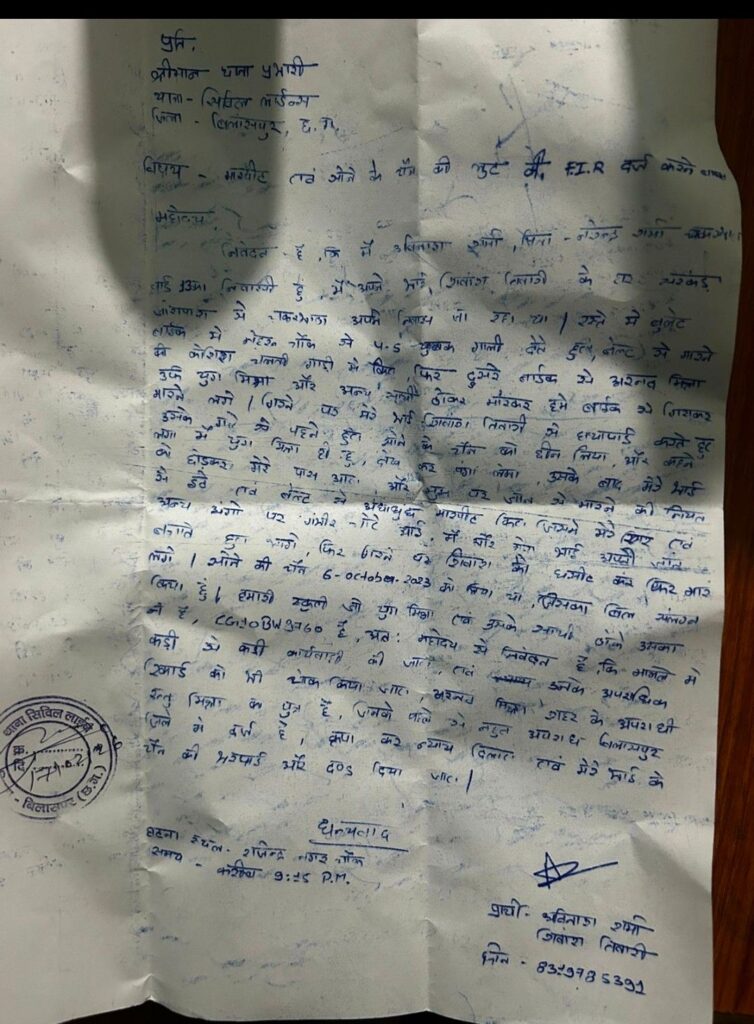 प्रति,
श्रीमान थाना प्रभारी
थाना - सिविल लाईन्स
जिला - बिलासपुर, छ.ग.
विषय - मारपीट एवं सोने के चैन की लुट की, F.I.R दर्ज करने बाबत
महोदय,
निवेदन है, कि मैं अविनाश शर्मा, पिता - नरेन्द्र शर्मा
वार्ड 13 का निवासी हूं मैं अपने भाई शिवांश तिवारी के घर सरकंडा
से चकरभाठा अपने निवास जा रहा था / रास्ते में बुलेट
बाईक में नेहरू चौक से 4-5 युवक गाली देते हुए, बेल्ट से मारने
की कोशिश चलती गाड़ी में किए, फिर दुसरे बाईक से अरनव मिश्रा
उर्फ युग मिश्रा और अन्य साथी ठोकर मारकर हमे बाईक से गिराकर
मारने लगे / गिरने पर मेरे भाई शिवांश तिवारी से हाथापाई करते हुए
उसके गले से पहने हुए सोने के चैन को छीन लिया, और कहने
लगा मैं युग मिश्रा ही हु, कर क्या लेगा, उसके बाद मेरे भाई
को छोड़कर मेरे पास आए, और मुझ पर जान से मारने की नियत
से डंडे एवं बेल्ट से अंधाधुंध मारपीट किए जिससे मेरे सर एवं
अन्य अंगो पर गंभीर चोटे आई, मैं और मेरा भाई अपनी जान
बचाते हुए भागे, फिर भागने पर शिवांश को घसीट कर फिर मारने
लगे / सोने की चैन 6-October-2023 को लिया था, जिसका बिल संलग्न
किया हूं / हमारी स्कुटी जो युग मिश्रा एवं उसके साथी
में है, CG10BW9760 है, अतः महोदय से निवेदन है, कि मामले में
कड़ी से कड़ी कार्यवाही की जाए, एवं उनके अपराधिक
रिकार्ड को भी चेक किया जाए, अरनव मिश्रा शहर के अपराधी
मिश्रा का पुत्र है, जिनके बहुत अपराध बिलासपुर
जिले में दर्ज है, कृपा कर न्याय दिलाए एवं मेरे भाई के
चैन की भरपाई और दण्ड दिया जाए /
धन्यवाद
घटना स्थल - राजेन्द्र नगर चौक
समय - करीब 9:15 P.M.
प्रार्थी - अविनाश शर्मा
शिवांश तिवारी
फोन - 8319785391
थाना सिविल लाईन
बिलासपुर (छ.ग.)